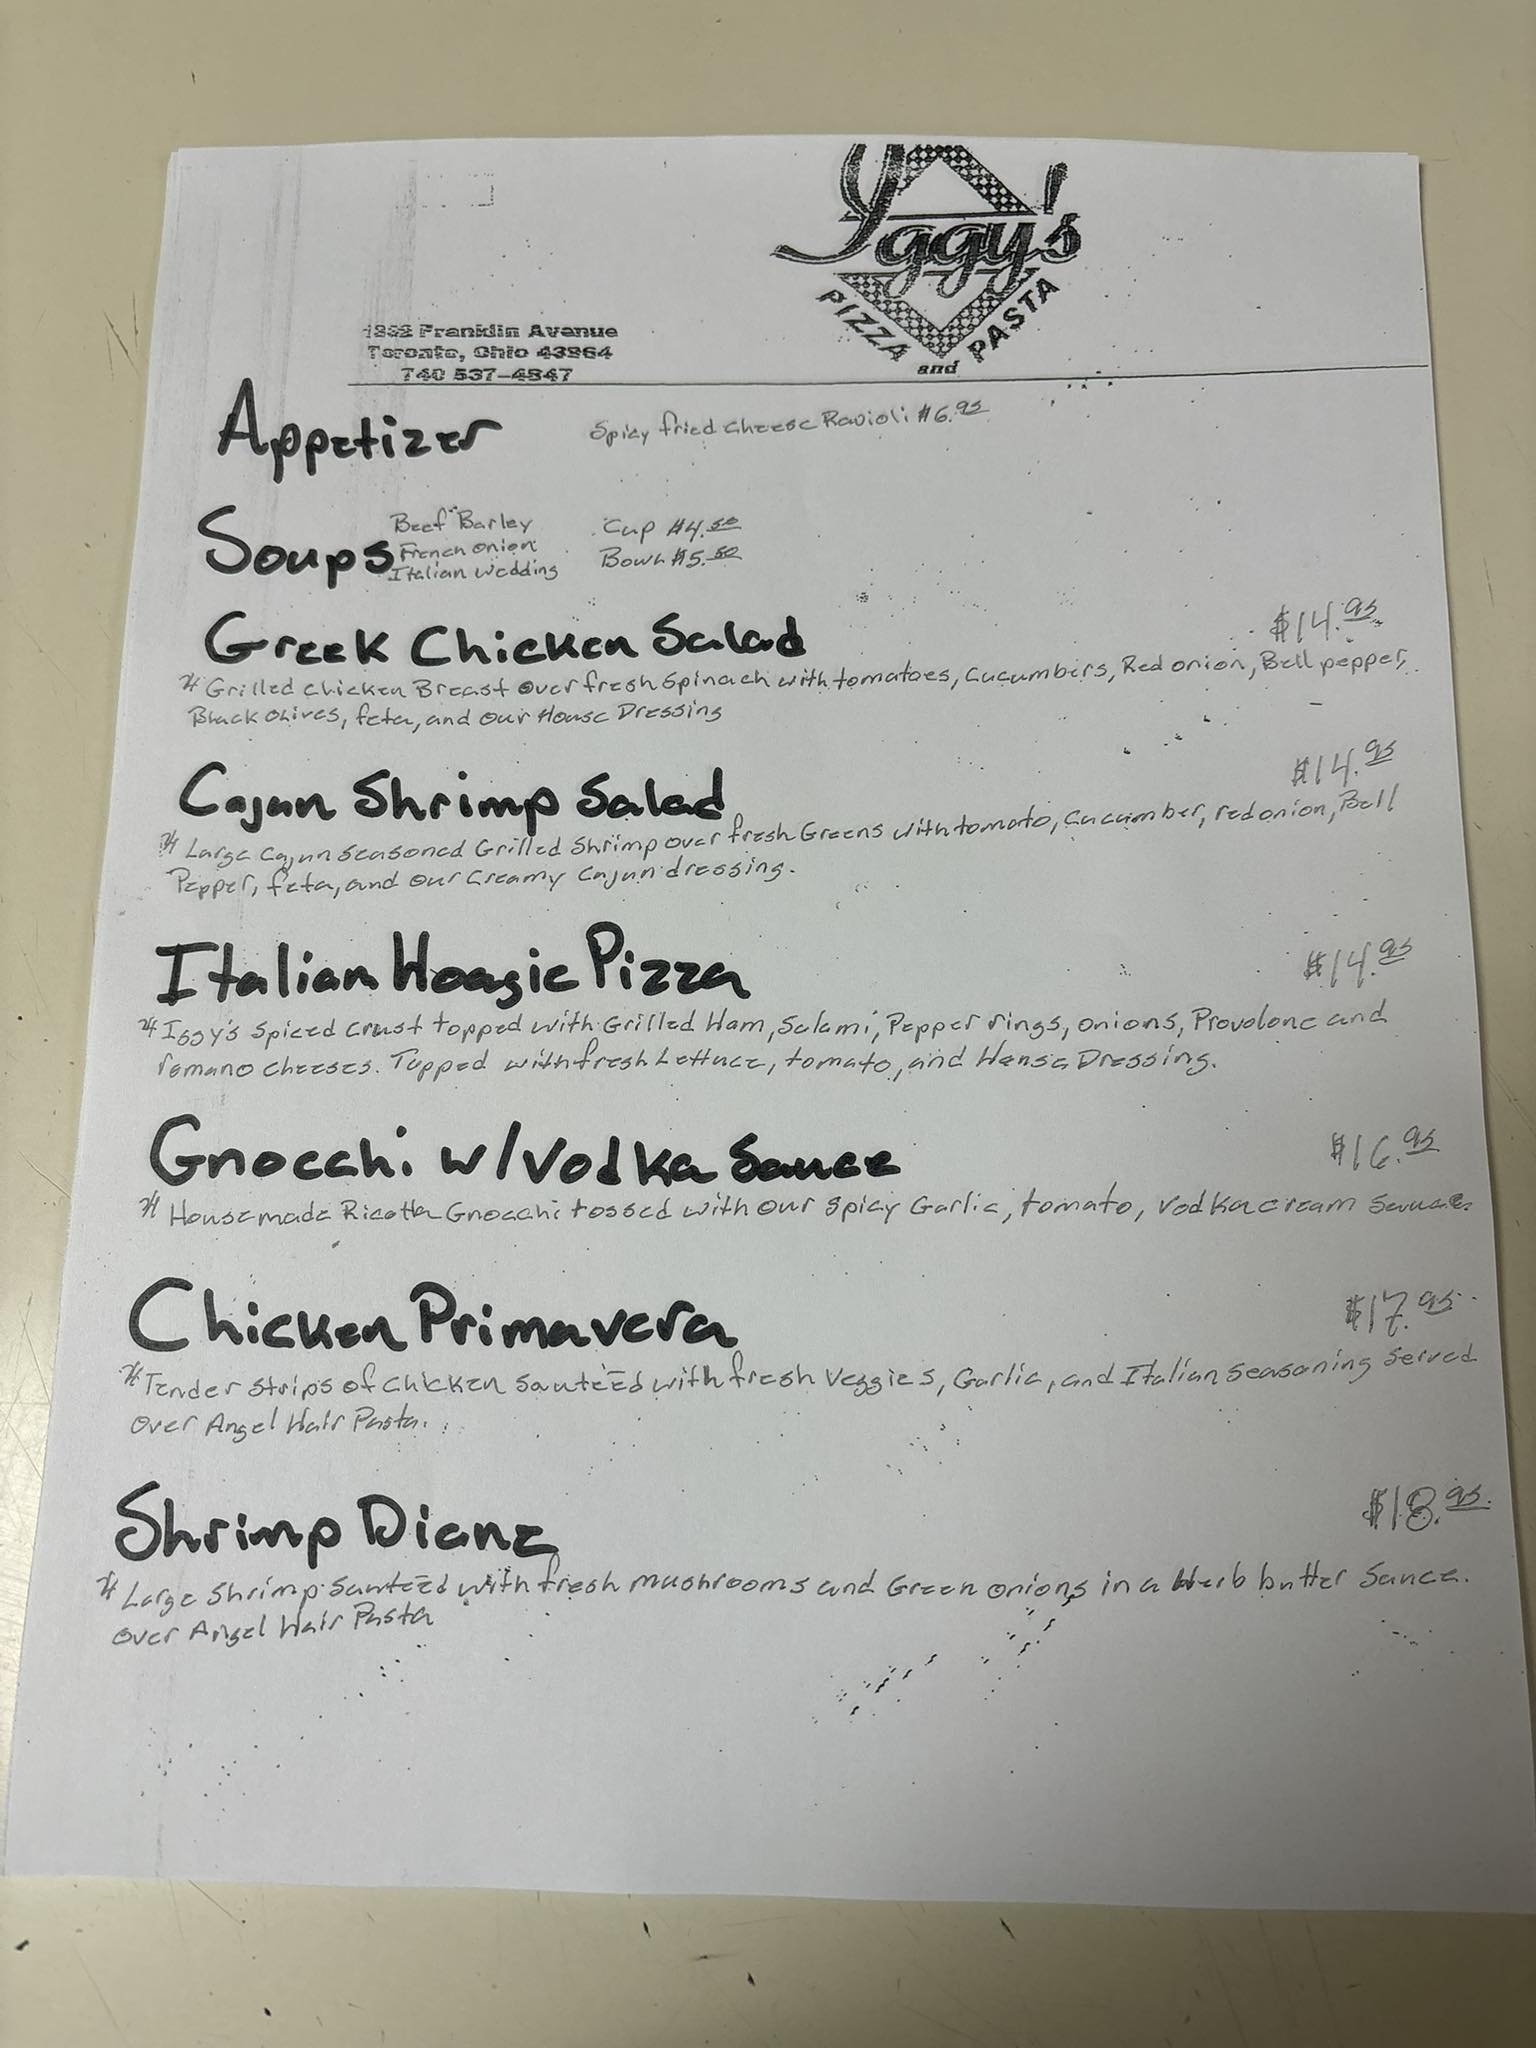 Iggy's!
PIZZA and PASTA
Franklin Avenue
Toronto, Ohio 43964
740 537-4847
Appetizer Spicy fried cheese Ravioli $6.95
Soups
Beef Barley Cup $4.50
French onion Bowl $5.50
Italian wedding
Greek Chicken Salad $14.95
* Grilled chicken Breast over fresh Spinach with tomatoes, Cucumbers, Red onion, Bell pepper,
Black olives, feta, and our House Dressing
Cajun Shrimp Salad $14.95
* Large Cajun seasoned Grilled Shrimp over fresh Greens with tomato, Cucumber, red onion, Bell
Pepper, feta, and our Creamy Cajun dressing.
Italian Hoagie Pizza $14.95
* Iggy's Spiced crust topped with Grilled Ham, Salami, Pepper rings, onions, Provolone and
romano cheeses. Topped with fresh Lettuce, tomato, and House Dressing.
Gnocchi w/Vodka Sauce $16.95
* Housemade Ricotta Gnocchi tossed with our Spicy Garlic, tomato, vodka cream Sauce.
Chicken Primavera $17.95
* Tender Strips of chicken Sauteéd with fresh Veggies, Garlic, and Italian Seasoning Served
over Angel Hair Pasta.
Shrimp Diane $18.95
* Large Shrimp Sauteéd with fresh mushrooms and Green onions in a Herb butter Sauce.
over Angel Hair Pasta